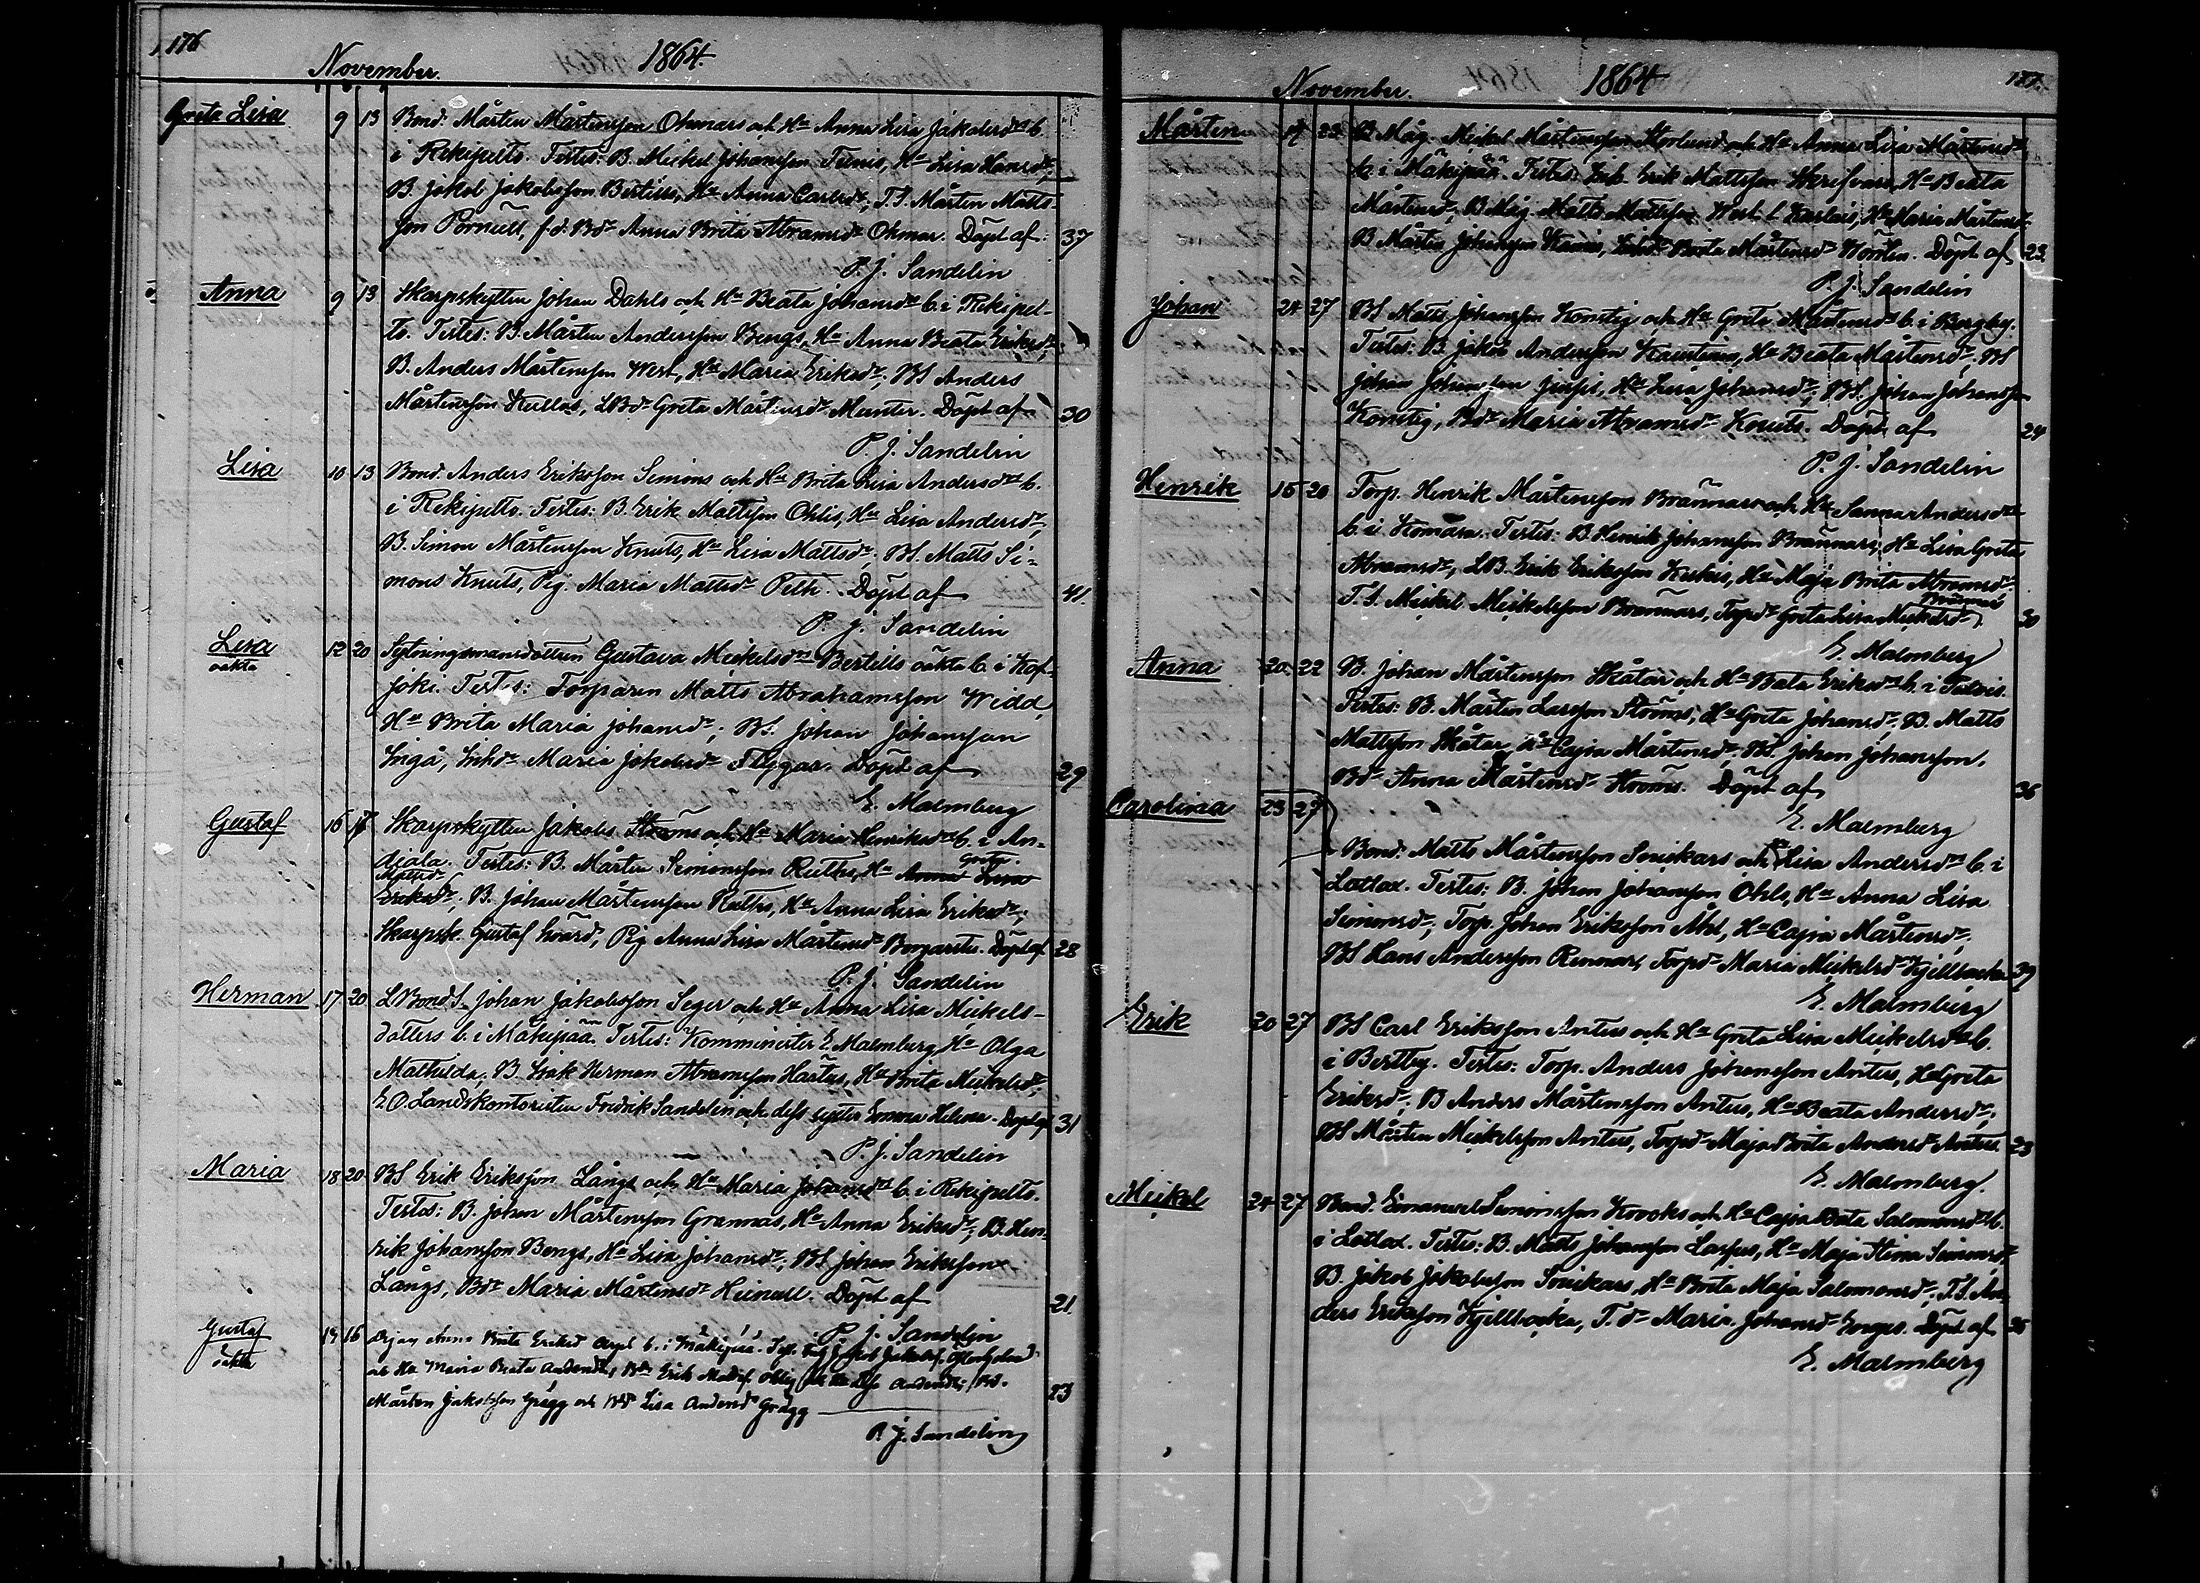 176
November. 1864.
Greta Lisa 9 13 Bond. Mårten Mårtensson Ohmars och Hu Anna Lisa Jakobsdrs b.
i Rekipelto. Testes: B. Mickel Johansson Hu Lisa Hansdr,
B. Jakob Jakobsson Bertills, Hu Anna Carlsdr, T.S. Mårten Matts-
son Pörnull, f.d. Bdr Anna Brita Abramsdr Ohmar. Döpt af: 37
P. J. Sandelin
Anna 9 13 Skarpskytten Johan Dahls och Hu Beata Johansdrs b. i Rekipel-
to. Testes: B. Mårten Andersson Bengs, Hu Anna Beata Eriksdr,
B. Anders Mårtensson West, Hu Maria Eriksdr, BS Anders
Mårtensson Kullas, LBdr Greta Mårtensdr Munter. Döpt af 30
P. J. Sandelin
Lisa 10 13 Bond. Anders Eriksson Simons och Hu Brita Lisa Andersdrs b.
i Rekipelto. Testes: B. Erik Mattsson Ohlis, Hu Lisa Andersdr,
B. Simon Mårtensson Knuts, Hu Lisa Mattsdr; BS. Matts Si=
mons Knuts, Pig. Maria Mattsdr Peth. Döpt af 41.
P. J. Sandelin
Lisa 12 20 Sytningsmansdottren Gustava Mickelsdrs Bertills oäkta b. i Kof-
oäkta
joki. Testes: Torparen Matts Abrahamsson Widd,
Hu Brita Maria Johansdr; BS. Johan Johansson
Ingå, Inhdr Maria Jakobsdr Flygar. Döpt af 29
E. Malmberg
Gustaf 16 17 Skarpskytten Jakobs Ströms och Hu Maria Henriksdrs b. i An-
diala. Testes: B. Mårten Simonsson Ruths, Hu Anna Lisa
Greta
Eriksdr; B. Johan Mårtensson Ruths, Hu Anna Lisa Eriksdr;
Skarpsk. Gustaf Svärd, Pig Anna Lisa Mårtensdr Borgarstu. Döpt af 28
P. J. Sandelin
Herman 17 20 LBondS. Johan Jakobsson Seger och Hu Anna Lisa Mickels-
dotters b. i Mäkipää. Testes: Komminister E. Malmberg, Hu Olga
Mathilda; B. Isak Herman Abramsson Hartus, Hu Brita Mickelsdr;
E.O. Landskontoristen Fredrik Sandelin och dess syster Emma Helena. Döpt af 31
P. J. Sandelin
Maria 18 20 BS Erik Eriksson Långs och Hu Maria Johansdrs b. i Rekipelto.
Testes: B. Johan Mårtensson Grannas, Hu Anna Eriksdr; B. Hen-
rik Johansson Bengs, Hu Lisa Johansdr; BS Johan Eriksson
Långs, Bdr Maria Mårtensdr Heinull. Döpt af 21.
P. J. Sandelin
Gustaf 14 16 Anna Brita Eriksd b. i Mäkipää. Jakob Jakobss.
oäkta
och Hu Maria Beata Andersdr, Erik Andersdr; BS.
Mårten Jakobsson Grägg och Bdr Lisa Andersd Grägg 23
P. J. Sandelin
November. 1864 177.
Mårten 17 23 B Måg Mickel Mårtensson Storlund och Hu Anna Lisa Mårtensdrs
b. i Mäkipää. Testes: Inh. Erik Mattsson Skrefvars, Hu Beata
Mårtensdr; B Måg. Matts Mattsson West l. Karlais, Hu Maria Mårtensdr
B Mårten Johansson Beata Mårtensdr Döpt af 23.
P. J. Sandelin
Johan 24 27 BS Matts Johansson Konstig och Hu Greta Mårtensdrs b. i Borgby.
Testes: B. Jakob Andersson Hu Beata Mårtensdr; BS
Johan Johansson Hu Lisa Johansdr; BS. Johan Johansson
Konstig, Bdr Maria Abramsdr Knuts. Döpt af 24
P. J. Sandelin
Henrik 15 20 Torp. Henrik Mårtensson Brännars och Hu Sanna Andersdrs
b. i Komåsa. Testes: B. Henrik Johansson Brännars, Hu Lisa Greta
Abramsdr, LB. Erik Eriksson Kiskis, Hu Maja Brita Abramsdr
T.S. Mickel Mickelsson Brännars, Torpdr Greta Lisa Mickelsdr Brännars 30
E. Malmberg
Anna 20 22 B. Johan Mårtensson Skåtar och Hu Beata Eriksdrs b. i Palvis.
Testes: B. Mårten Larsson Ströms, Hu Greta Johansdr; B. Matts
Mattsson Skåtar, Hu Cajsa Mårtensdr; BS. Johan Johansson,
Bdr Anna Mårtensdr Ströms. Döpt af 36
E. Malmberg
Carolina 23 27
Bond. Matts Mårtensson Snickars och Hu Lisa Andersdrs b. i
Lotlax. Testes: B. Johan Johansson Ohls, Hu Anna Lisa
Simonsdr; Torp. Johan Eriksson Åhl, Hu Cajsa Mårtensdr;
BS Hans Andersson Rennars, Torpdr Maria Mickelsdr Kjellbacka 39
E. Malmberg
Erik 20 27 BS Carl Eriksson Antus och Hu Greta Lisa Mickelsdrs b.
i Bertby. Testes: Torp. Anders Johansson Antus, Hu Greta
Eriksdr; B Anders Mårtensson Antus, Hu Beata Andersdr;
BS Mårten Mickelsson Antus, Torpdr Maja Brita Andersdr Antus. 23
E. Malmberg.
Mickel 24 27 Bond. Emanuel Simonsson Krooks och Hu Cajsa Beata Salomonsdrs b.
i Lotlax. Testes: B. Matts Johansson Laspus, Hu Maja Stina Simonsdr,
B. Jakob Jakobsson Snickars, Hu Brita Maja Salomonsdr; T.S. An-
ders Eriksson Kjellbacka, T. dr Maria Johansdr Döpt af 36
E. Malmberg